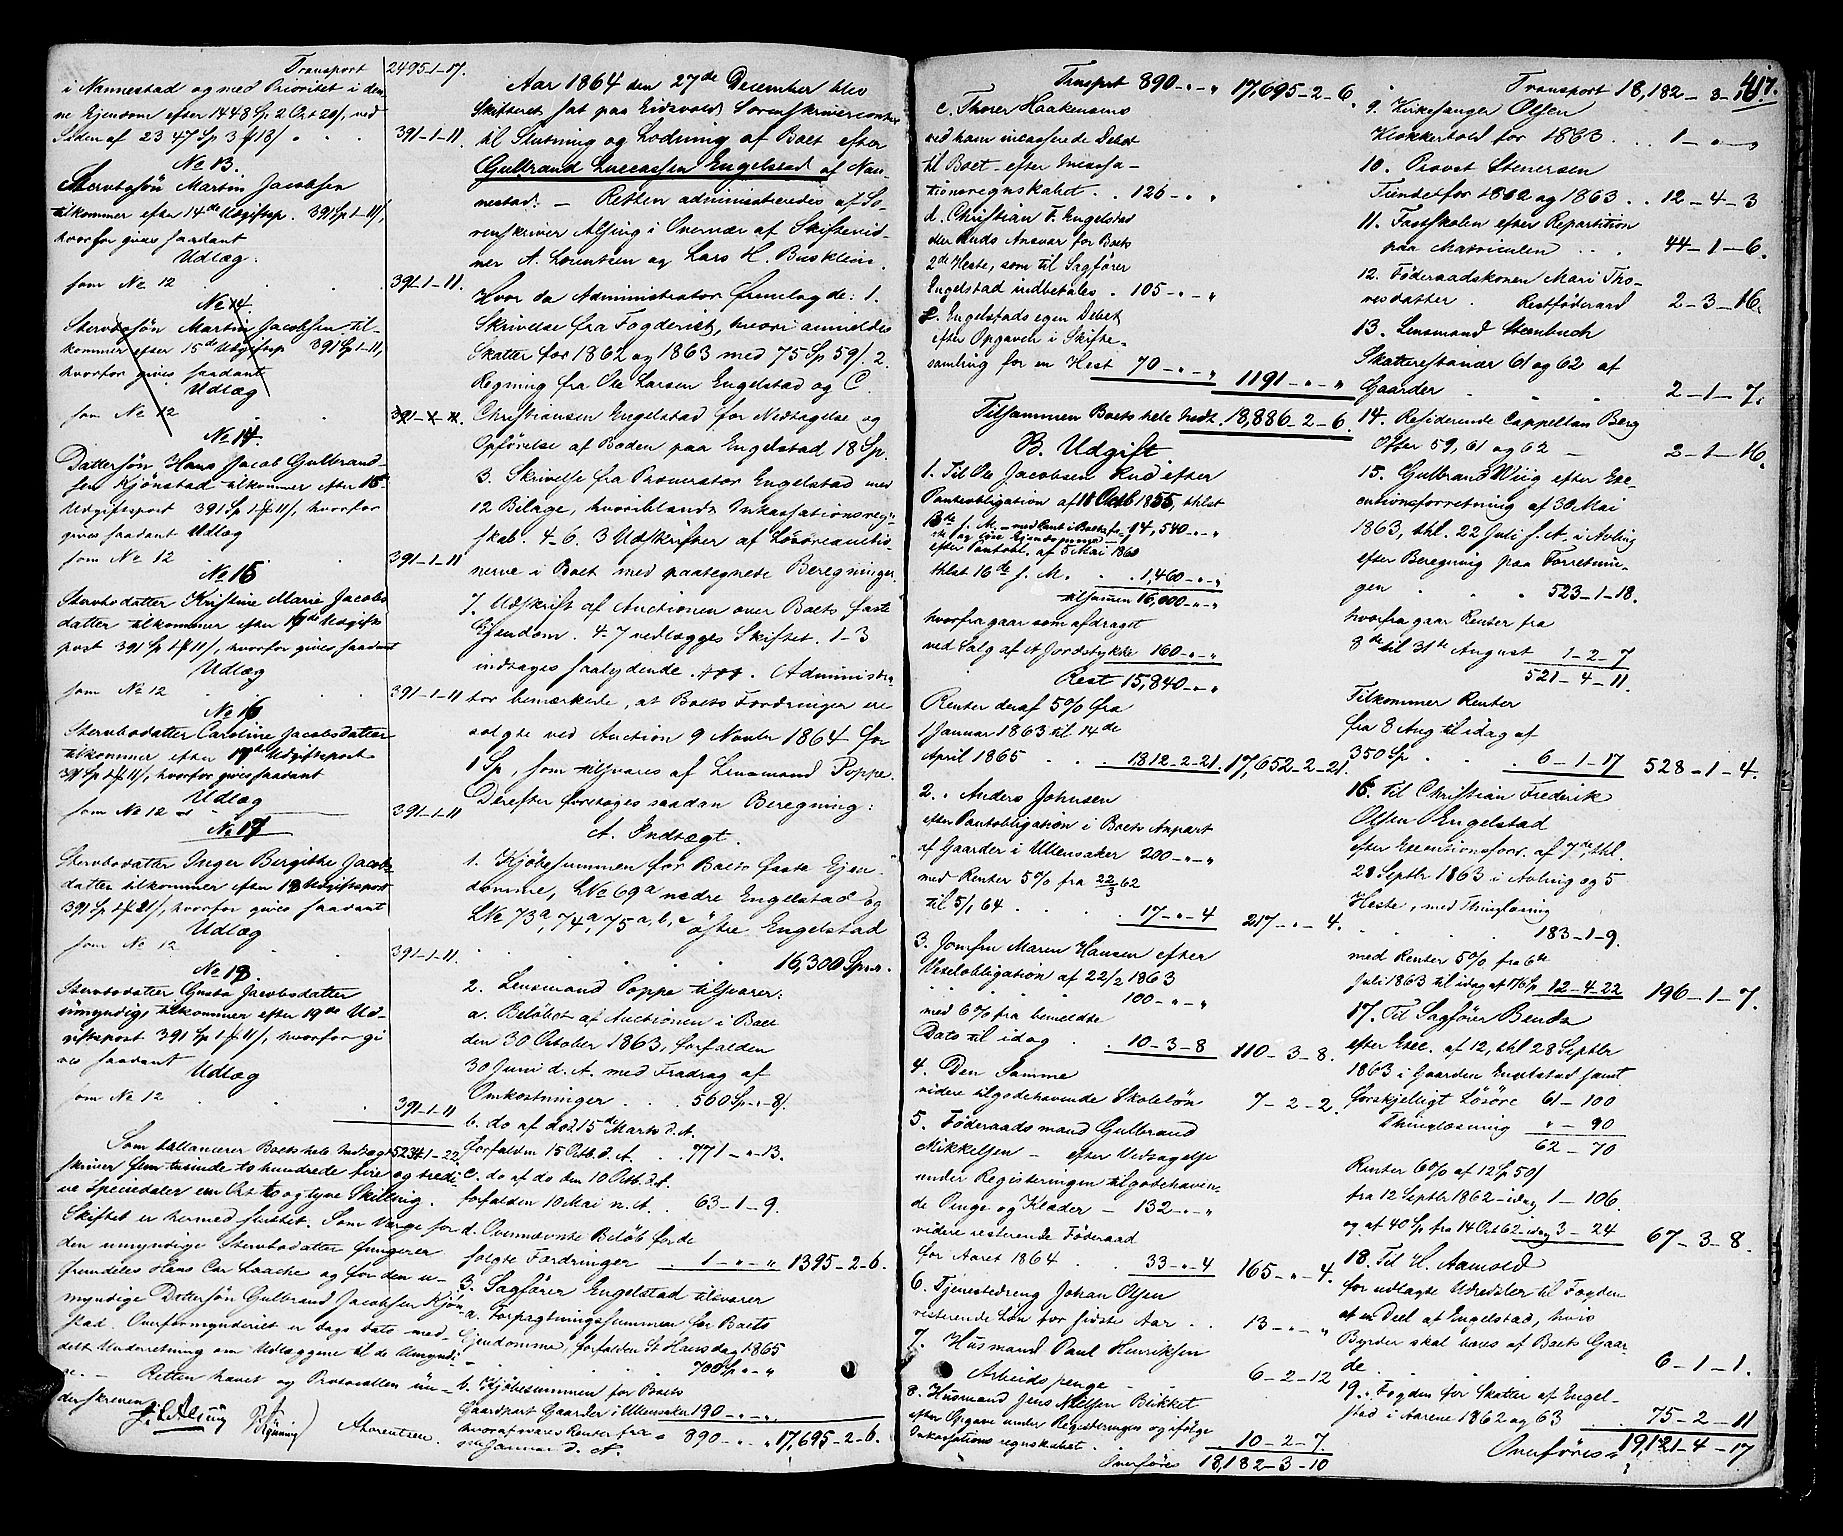 Transport 2495-1-17.
i Nannestad og med Prioritet i den-
ne Ejendom efter 1448 Sp 2 Ort 20 s, ved
Siden af 2347 Sp 3 # 18 s 391-1-11.
No 13.
Stervbosøn Martin Jacobsen
tilkommer efter 14de Udgiftsp. 391 Sp 1-11 s,
hvorfor gives saadant
Udlæg:
som No 12 . . . 391-1-11.
No 14
Stervbosøn Martin Jacobsen til-
kommer efter 15de Udgiftsp 391 Sp 1-11,
hvorfor gives saadant
Udlæg
som No 12 .
No 14.
Dattersøn Hans Jacob Gulbrand-
sen Kjönstad tilkommer efter 15-
Udgiftspost 391 Sp 1 # 11 s, hvorfor
gives saadant Udlæg
som No 12 . . 391-1-11
No 15
Stervbodatter Kristine Marie Jacobs
datter tilkommer efter 16de Udgifts
post 391 Sp 1 # 11 s, hvorfor gives saadant
Udlæg
som No 12 . . . 391-1-11
No 16
Stervbodatter Caroline Jacobsdatter
tilkommer efter 17de Udgiftspost
391 Sp 1 # 11 s, hvorfor gives saadant
Udlæg
som No 12 391-1-11
No 17
Stervbodatter Inger Birgithe Jacobs
datter tilkommer efter 18 Udgiftspost
391 Sp 1 # 21 s, hvorfor gives saadant
Udlæg
som No 12 . . 391-1-11.
No 18.
Stervbodatter Gusta Jacobsdatter
umyndig, tilkommer efter 19de Ud-
giftspost 391 Sp 1 # 11 s, hvorfor gi
ves saadant
Udlæg
som No 12 . . . 391-1-11
Som ballancerer Boets hele Indtægt 5234-1-22.
skriver fem tusinde to hundrede fire og tredi
ve Speciedaler en Ort to og tyve Skilling.
Skiftet er hermed sluttet. Som Værge for
den umyndige Stervbodatter fungerer
fremdeles Hans Carl Laache og for den u-
myndige Dattersøn Gulbrand Jacobsen Kjön
stad. Overformynderiet er dags dato med-
delt Underretning om Udlæggene til de Umyndi
ge. – Retten hævet og Protocollen un-
derskreven.
Alsing A Lorentsen.
Aar 1864 den 27de December blev
Skifteret sat paa Eidsvold Sorenskrivercontor
til Slutning og Lodning af Boet efter
Gulbrand Lucassen Engelstad af Nan-
nestad. – Retten administreredes af So-
renskriver Alsing i Overvær af Skiftevid-
ner A. Lorentsen og Lars H. Busklein.
Hvor da Administrator fremlagde: 1.
Skrivelse fra Fogderiet, hvori anmeldes
Skatter for 1862 og 1863 med 75 Sp 59 s. 2.
Regning fra Ole Larsen Engelstad og C.
Christiansen Engelstad for Nedtagelse og
Opførelse af Boden paa Engelstad 18 Sp.
3. Skrivelse fra Procurator Engelstad med
12 Bilage, hvoriblandt Inkassationsreg-
skab. 4-6. 3 Udskrifter af Løsøreauctio-
nerne i Boet med paategnede Beregninger.
7. Udskrift af Auctionen over Boets faste
Ejendom. 4-7 vedlægges Skiftet. 1-3
indtages saalydende. Administra
tor bemærkede, at Boets Fordringer ere
solgte ved Auction 9 Novbr 1864 for
1 Sp, som tilsvares af Lensmand Poppe.
Derefter foretoges saadan Beregning:
A. Indtægt.
1. Kjøbesummen for Boets faste Ejen-
domme, LNo 69a nedre Engelstad og
LNo 73a, 74a, 75a,b,c østre Engelstad
. . . . 16,300 Sp „-„.
2. Lensmand Poppe tilsvarer:
a. Beløbet af Auctionen i Boet
den 30 October 1863, forfalden
30 Juni d. A. med Fradrag af
Omkostninger . . 560 Sp-„-8 s.
b. do af do d 15de Marts d. A.
forfalden 15 Octb. d. A. . . 771-„-13.
c. do af do den 10 Octb. d. A.
forfalden 10 Mai n. A. . 63-1-9.
d. Ovennævnte Beløb for de
solgte Fordringer . 1-„-„ 1395-2-6.
3. Sagfører Engelstad tilsvarer
a. Forpagtningssummen for Boets
Ejendomme, forfalden St Hansdag 1865
700 Sp „-„
b. Kjøbesummen for Boets
Gaardpart Gaarder i Ullensaker 190-„-„
hvoraf svares Renter fra 890-„-„ 17,695-2-6.
1ste Januar d. A.
Transport 890-„-„ 17,695-2-6.
c. Thorer Haakensens
ved ham incasserede Debet
til Boet efter Incassa-
tionsregnskabet. . 126-„-„
d. Christian F. Engelstad
eller Ruds Ansvar for Boets
2de Heste, som til Sagfører
Engelstad indbetales . 105-„-„
e. Engelstads egen Debet
efter Opgaven i Skifte-
samling for en Hest 70-„-„ 1191-„-„
Tilsammen Boets hele Indt. 18,886-2-6.
B. Udgift
1. Til Ole Jacobsen Rud efter
Pantobligation af 18 Octb 1855, thlst
13de f. M. – med Pant i Boets fa- 14,540-„-„
ste og løse Ejendomme –
efter Pantobl. af 5 Mai 1860
thlst 16de f. M. . . 1,460-„-„
tilsammen 16,000-„-„
hvorfra gaar som afdraget
ved Salg af et Jordstykke 160-„-„
Rest 15,840-„-„
Renter deraf 5% fra
1 Januar 1863 til 14de
April 1865 . . . 1812-2-21. 17,652-2-21.
2. Anders Johnsen
efter Pantobligation i Boets Anpart
af Gaarder i Ullensaker 200-„-„
med Renter 5% fra 22/3 62
til 5/1 64 . . . 17-„-4 217-„-4.
3. Jomfru Maren Hansen efter
Vexelobligation af 22/2 1863
. . . 100-„-„
med 6% fra bemeldte
Dato til idag . . 10-3-8 110-3-8.
4. Den Samme
videre tilgodehavende Skoleløn 7-2-2.
5. Føderaadsmand Gulbrand
Mikkelsen – efter Vedtagelse
under Registeringen tilgodehaven-
de Penge og Klæder – 132-„-„
videre resterende Føderaad
for Aaret 1864 . . 33-„-4 165-„-4.
6. Tjenestedreng Johan Olsen
resterende Løn for sidste Aar . . 13-„-„
7. Husmand Paul Henriksen
Arbeidspenge 6-2-12
8. Husmand Jens Nielsen Bikket
efter Opgave under Registeringen og ifølge
Inkassationsregnskabet. . 10-2-7.
Overføres 18,182-3-10
417.
Transport 18,182-3-10.
9. Kirkesanger Olsen
Klokkertold for 1863 . . . 1-„-„
10. Provst Stenersen
Tiende for 1862 og 1863 . . 12-4-3
11. Fastskolen efter Repartition
paa Matriculen . . 44-1-6.
12. Føderaadskonen Mari Tho-
resdatter . Restføderaad 2-3-16.
13. Lensmand Steenbuch
Skatterestancer 61 og 62 af
Gaarder „ „ 2-1-7.
14. Residerende Cappellan Berg
Offer 59, 61 og 62 – 2-1-16.
15. Gulbrand Wiig efter Exe-
cutionsforretning af 30 Mai
1863, thl. 22 Juli s. A. i Avling
efter Beregning paa Forretnin-
gen . . . 523-1-18.
hvorfra gaar Renter fra
8de til 31te August 1-2-7
521-4-11.
Tilkommer Renter
fra 8 Aug til idag af
350 Sp . . 6-1-17 528-1-4.
16. Til Christian Frederik
Olsen Engelstad
efter Executionsforr. af 7de, thl.
28 Septbr 1863 i Avling og 5
Heste, med Thinglæsning
. . . 183-1-9.
med Renter 5% fra 6te
Juli 1863 til idag af 176 Sp 12-4-22 196-1-7.
17. Til Sagfører Bendz
efter Exec. af 12, thl 28 Septbr
1863 i Gaarden Engelstad samt
forskjelligt Løsøre 61-100
Thinglæsning „-90
62-70
Renter 6% af 12 Sp 50 s
fra 12 Septbr 1862-idag 1-106.
og af 40 Sp fra 14 Oct 62-idag 3-24 67-3-8.
18. Til H. Aamold
for udlagte Udredsler til Fogden
af en Deel af Engelstad, hvis
Byrder skal bæres af Boets Gaar-
de . . . 6-1-1.
19. Fogden for Skatter af Engel-
stad i Aarene 1862 og 63 . . 75-2-11
Overføres 19,121-4-17